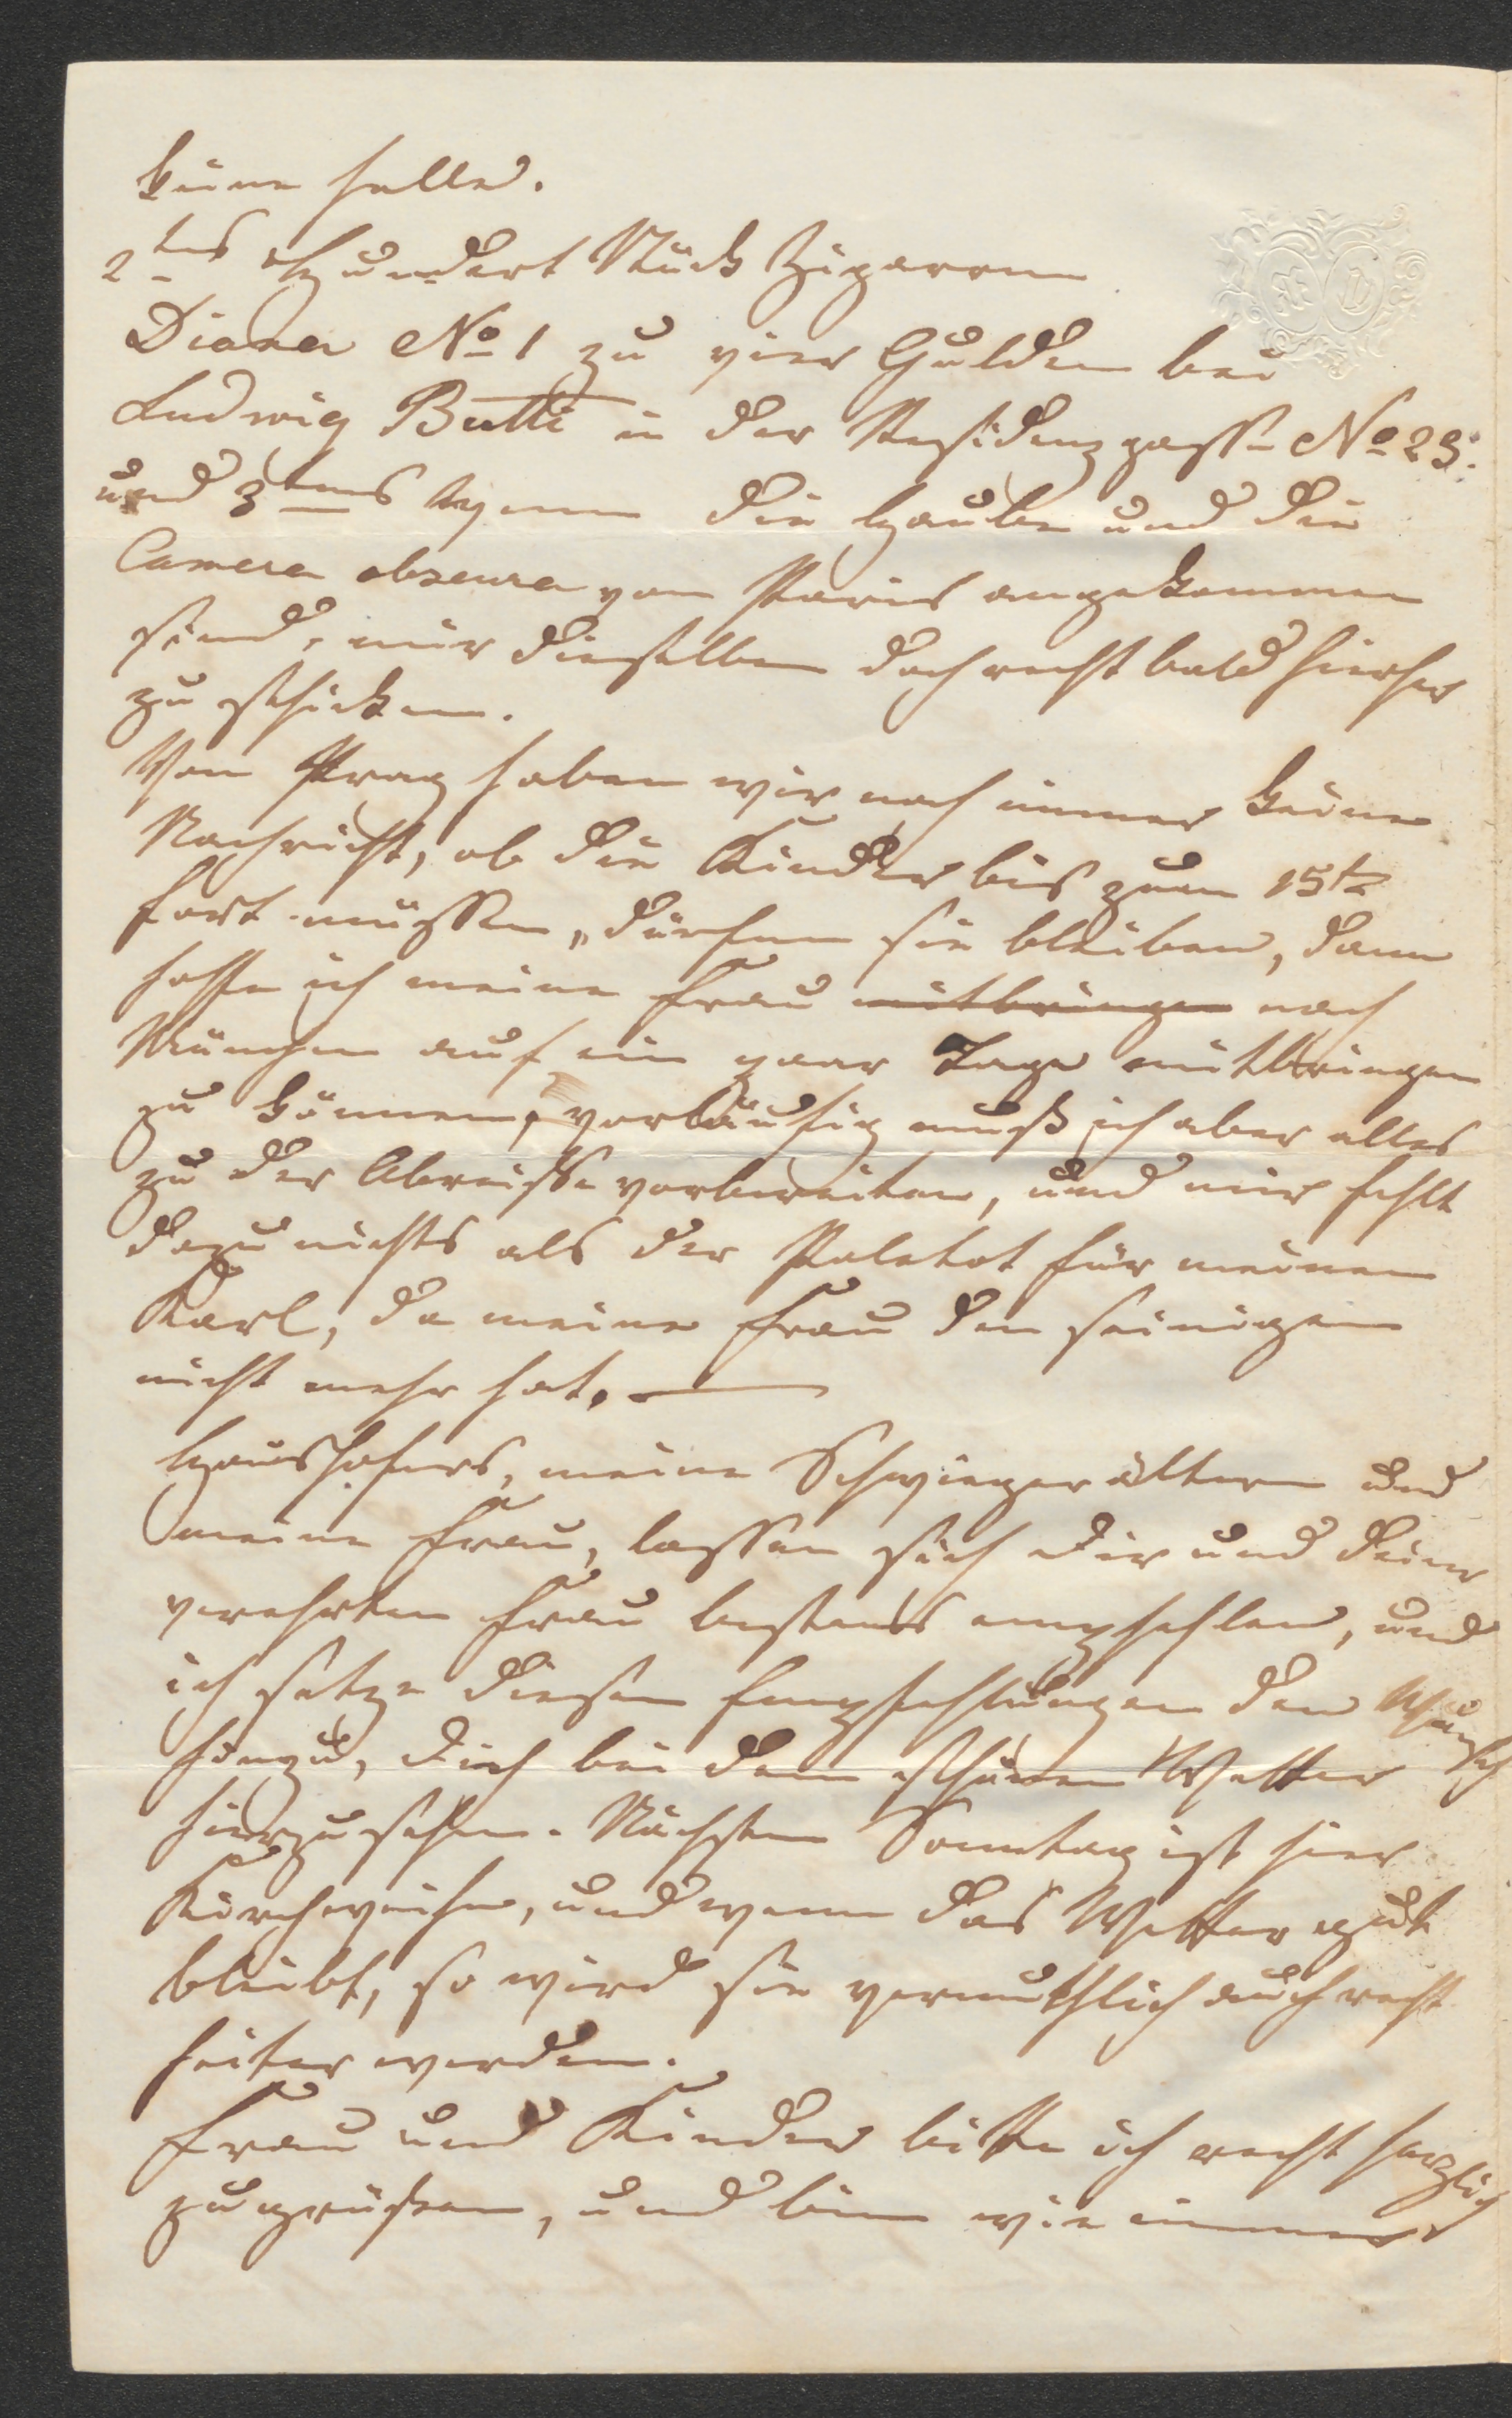 keine halle.
2tens Hundert Stück Zigarren
Diana No 1 zu vier Gulden bei
Ludwig Butti in der Residenzgasse No 23.
und 3tens wenn die Haube und die
Camera obscura von Paris angekommen
sind, mir dieselben doch recht bald hierher
zu schicken.
Von Prag haben wir noch immer keine
Nachricht, ob die Kinder bis zum 15t
fort müssen, dürfen sie bleiben, dann
hoffe ich meine Frau mitbringen nach
München auf ein paar Tage mitbringen
zu können, vorläufig muß ich aber alles
zu der Abreise vorbereiten, und mir fehlt
dazu nichts als der Paletot für meinen
Karl, da meine Frau den seinigen
nicht mehr hat. —
Haushofers, meine Schwiegerältern und
meine Frau, lassen sich dir und deiner
verehrten Frau bestens empfehlen, und
ich setze diesen Empfehlungen den Wunsch
hinzu, dich bei dem schönen Wetter
hier zu sehen. Nächsten Sonntag ist hier
Kirchweihe, und wenn das Wetter gut
bleibt, so wird sie vermuthlich auch recht
heiter werden.
Frau und Kinder bitte ich recht herzlich
zu grüßen, und bin wie immer